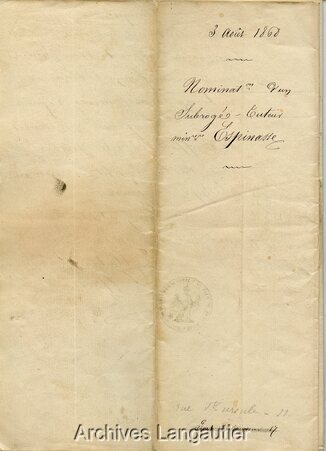 3 Août 1868
Nominat.on d'un
Subrogé-Tuteur
min.rs Espinasse
rue Ste Ursule - 11
17
Archives Langautier